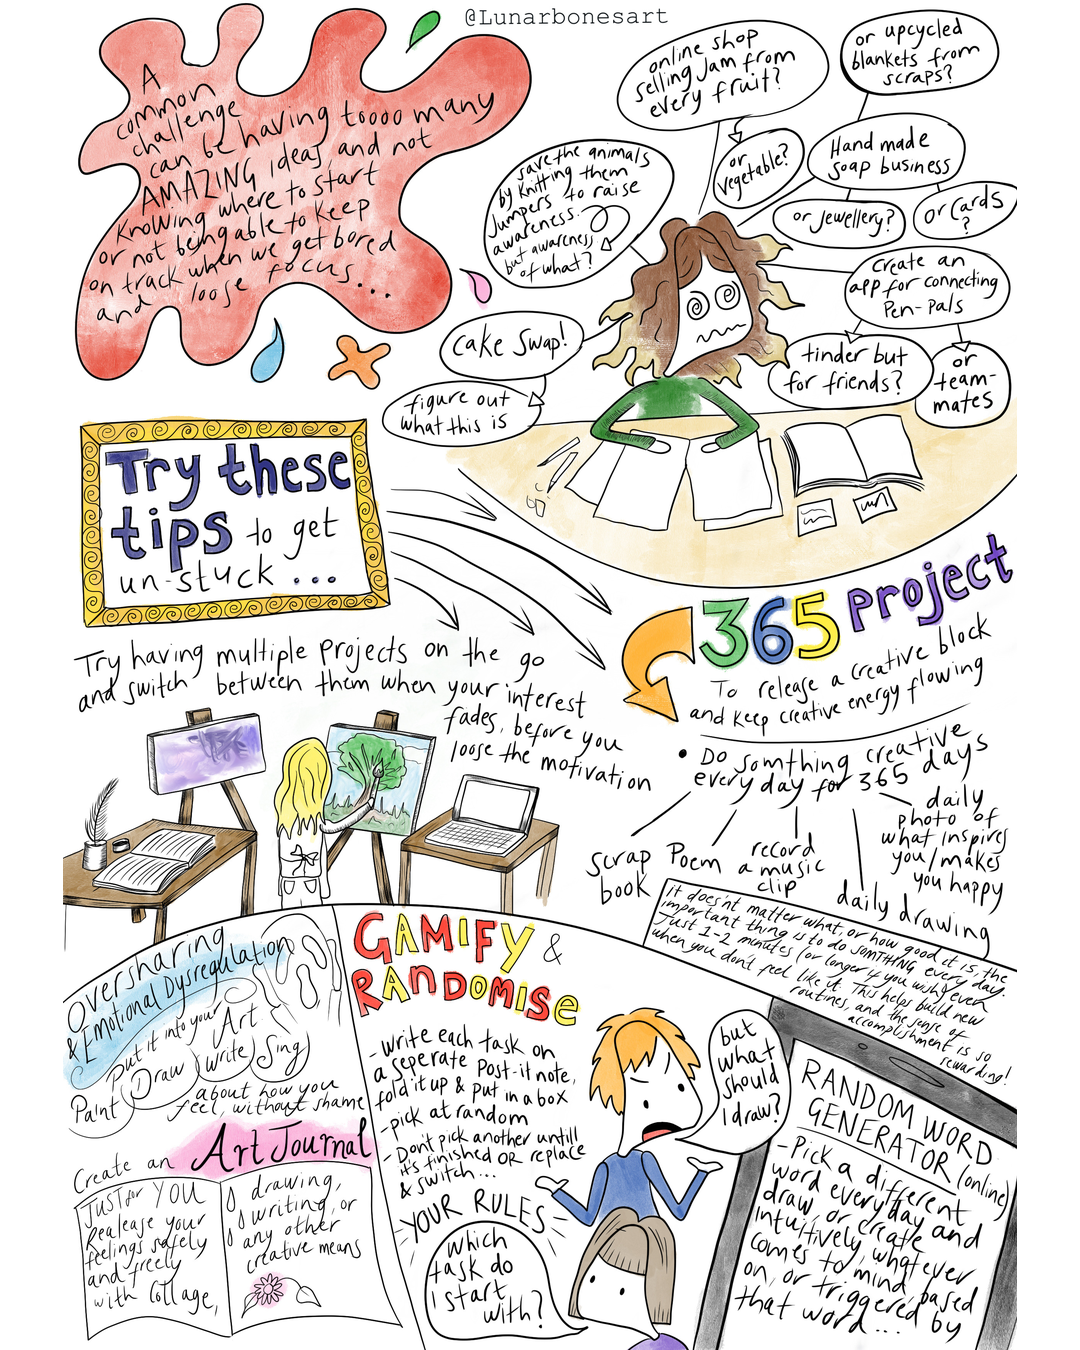 @Lunarbonesart
A
common
challenge
can be having toooo many
AMAZING ideas and not
knowing where to start
or not being able to keep
on track when we get bored
and loose focus...
online shop
selling jam from
every fruit?
or
vegetable?
or upcycled
blankets from
scraps?
Hand made
soap business
or jewellery?
or cards
?
save the animals
by knitting them
jumpers to raise
awareness.
but awareness
of what?
create an
app for connecting
Pen-pals
tinder but
for friends?
or
team-
mates
cake swap!
figure out
what this is
Try these
tips to get
un-stuck ...
Try having multiple projects on the go
and switch between them when your interest
fades, before you
loose the motivation
365 Project
To release a creative block
and keep creative energy flowing
• Do somthing creative
every day for 365 days
scrap
book
Poem
record
a music
clip
daily drawing
daily
photo of
what inspires
you/makes
you happy
it does'nt matter what, or how good it is, the
important thing is to do SOMTHING every day.
Just 1-2 minutes (or longer if you wish) even
when you don't feel like it. This helps build new
routines, and the sense of
accomplishment is so
rewarding!
Oversharing
& Emotional Dysregulation
Put it into your Art
Paint Draw write Sing
about how you
feel, without shame
Create an Art Journal
JUST for YOU
Realease your
feelings safely
and freely
with collage,
drawing,
writing, or
any other
creative means
GAMIFY &
RANDOMISE
- Write each task on
a seperate Post-it note,
fold it up & put in a box
- pick at random
- Don't pick another untill
it's finished OR replace
& switch...
YOUR RULES
which
task do
I start
with?
but
what
should
I draw?
RANDOM WORD
GENERATOR (online)
- Pick a different
word everyday and
draw or create
intuitively, whatever
comes to mind, based
on, or triggered by
that word...